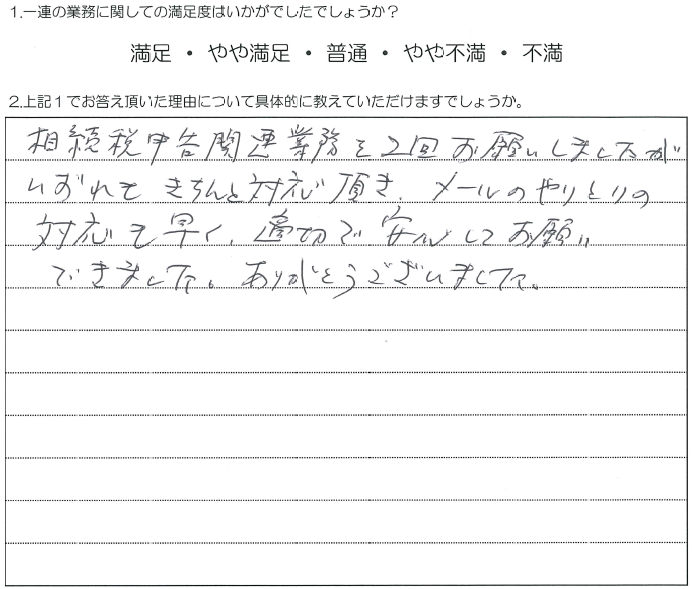 1.一連の業務に関しての満足度はいかがでしたでしょうか？
満足 ・ やや満足 ・ 普通 ・ やや不満 ・ 不満
2.上記１でお答え頂いた理由について具体的に教えていただけますでしょうか。
相続税申告関連業務を2回お願いしましたが
いずれもきちんと対応頂き、メールのやりとりの
対応も早く、適切で安心してお願い
できました。ありがとうございました。